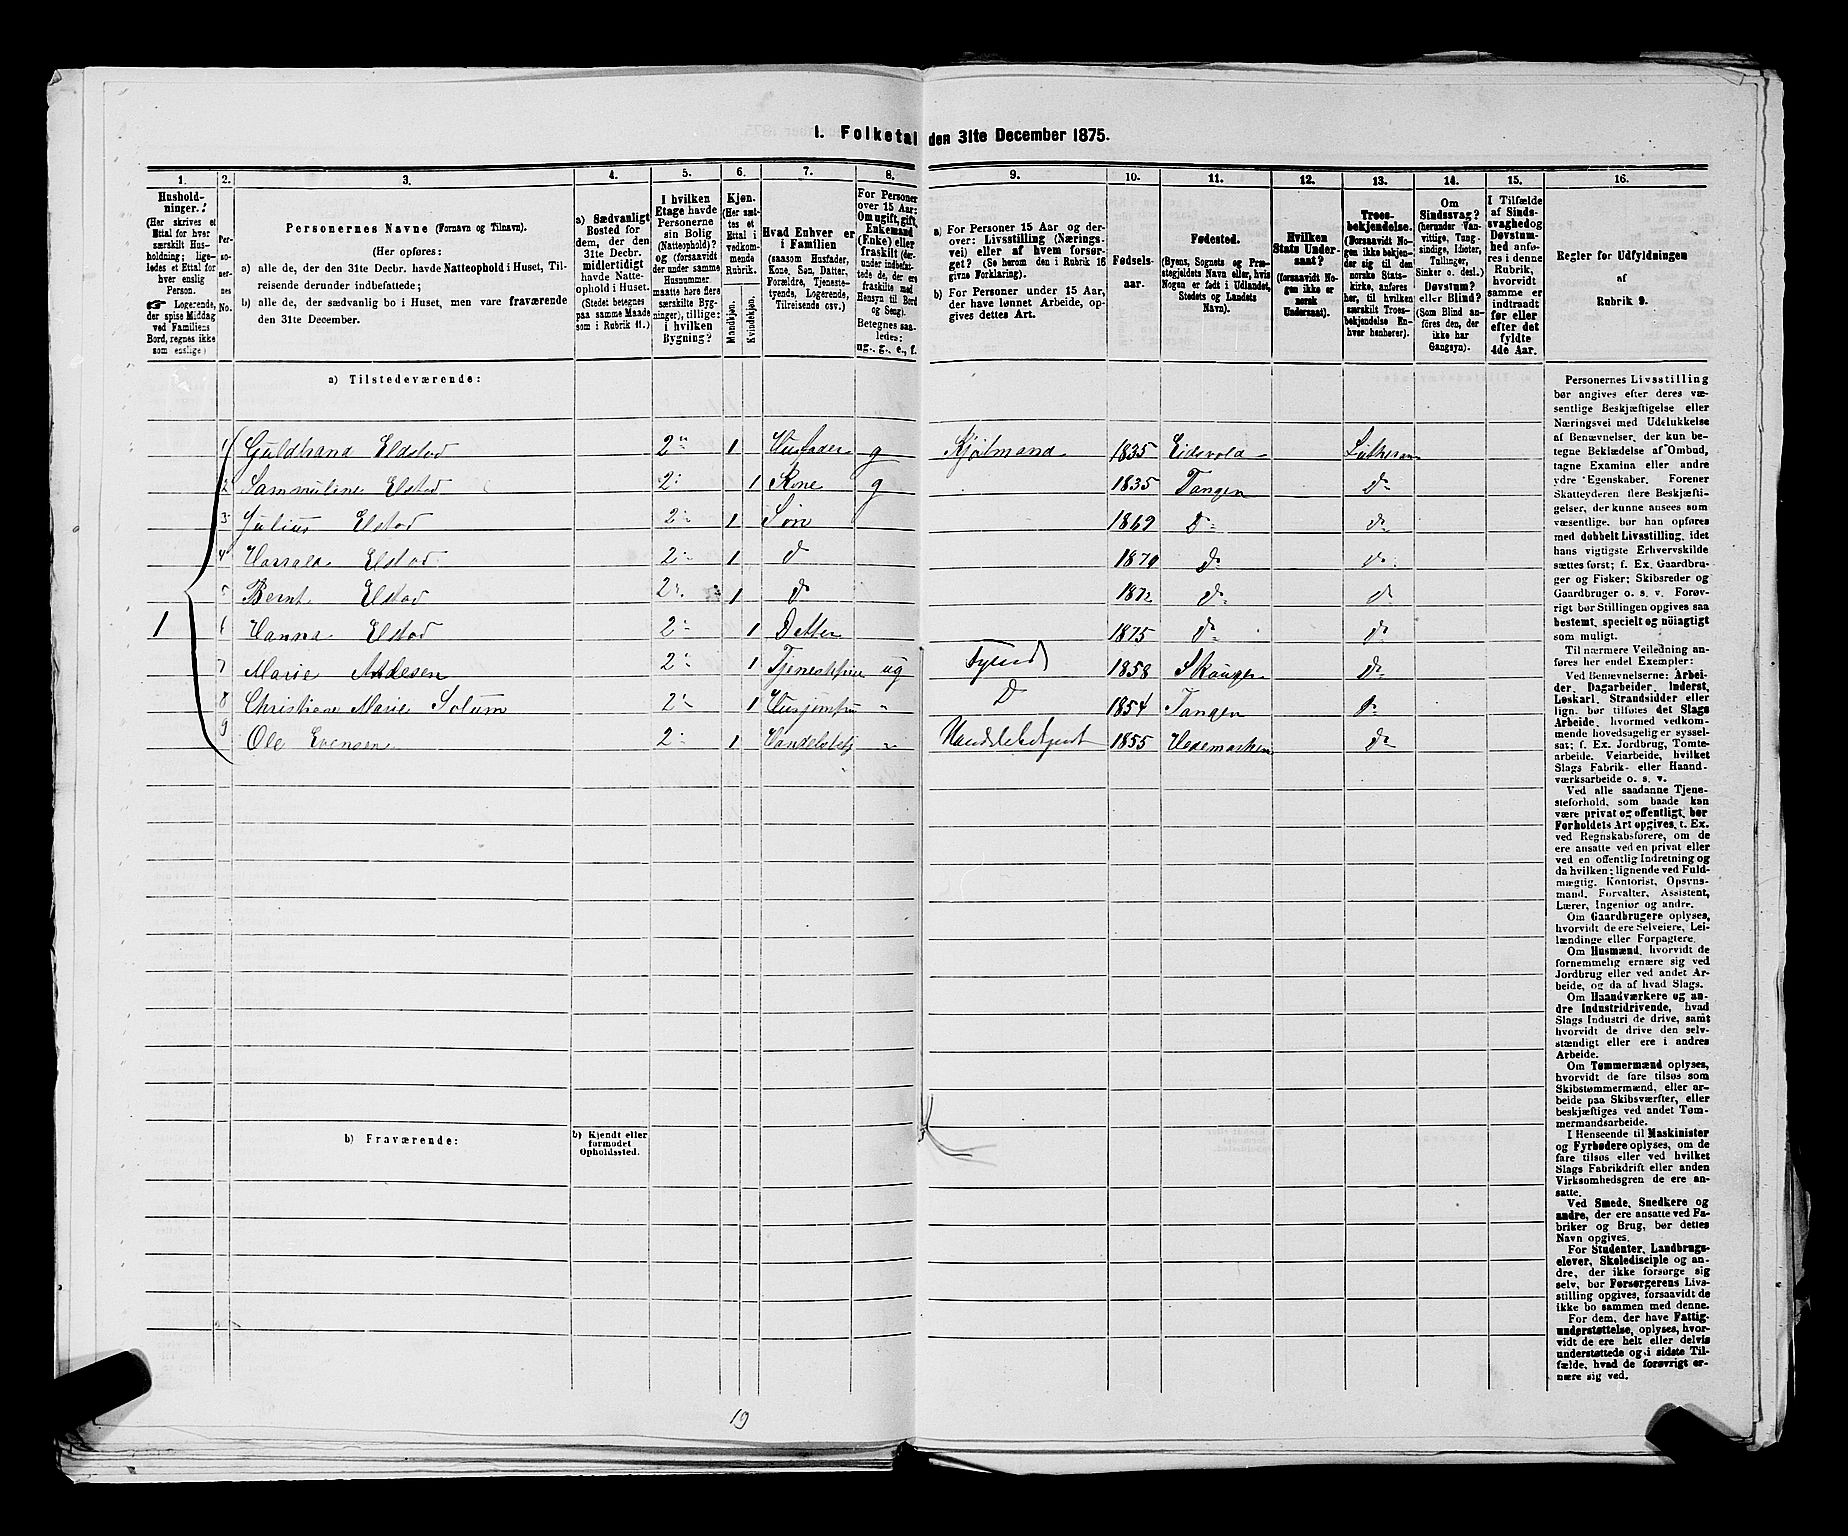 I. Folketal den 31te December 1875.
1. 2. 3. 4. 5. 6. 7. 8. 9. 10. 11. 12. 13. 14. 15. 16.
Hushold-
ninger.
(Her skrives et
Ettal for hver
særskilt Hus-
holdning; lige-
ledes et Ettal for
hver enslig
Person.
☞ Logerende,
der spise Middag
ved Familiens
Bord, regnes ikke
som enslige)
Per-
so-
ner-
nes
No.
Personernes Navne (Fornavn og Tilnavn).
(Her opføres:
a) alle de, der den 31te Decbr. havde Natteophold i Huset, Til-
reisende derunder indbefattede;
b) alle de, der sædvanlig bo i Huset, men vare fraværende
den 31te December.
a) Sædvanligt
Bosted for
dem, der den
31te Decbr.
midlertidigt
havde Natte-
ophold i Huset.
(Stedet betegnes
paa samme Maade
som i Rubrik 11.)
I hvilken
Etage havde
Personerne
sin Bolig
(Natteophold)?
og (forsaavidt
der under samme
Husnummer
maatte høre flere
særskilte Byg-
ninger), tillige:
i hvilken
Bygning?
Kjøn.
(Her sæt-
tes et
Ettal i
vedkom-
mende
Rubrik.
Mandkjøn.
Kvindekjøn.
Hvad Enhver er
i Familien
(saasom Husfader,
Kone, Søn, Datter,
Forældre, Tjeneste-
tyende, Logerende,
Tilreisende osv.)
For Personer
over 15 Aar:
Om ugift, gift,
Enkemand
(Enke) eller
fraskilt (der-
under indbefat-
tede de, der ere
fraskilte med
Hensyn til Bord
og Seng).
Betegnes saa-
ledes:
ug., g., e., f.
a) For Personer 15 Aar og der-
over: Livsstilling (Nærings-
vei) eller af hvem forsør-
get? (Se herom den i Rubrik 16
givne Forklaring).
b) For Personer under 15 Aar,
der have lønnet Arbeide, op-
gives dettes Art.
Fødsels-
aar.
Fødested.
(Byens, Sognets og Præ-
stegjeldets Navn eller, hvis
Nogen er født i Udlandet,
Stedets og Landets
Navn).
Hvilken
Stats Under-
saat?
(forsaavidt No-
gen ikke er
norsk
Undersaat).
Troes-
bekjendelse.
(Forsaavidt No-
gen ikke bekjen-
der sig til den
norske Stats-
kirke, anføres
her, til hvilken
særskilt Troes-
bekjendelse En-
hver henhører).
Om
Sindssvag?
(herunder Van-
vittige, Tung-
sindige, Idioter,
Tullinger,
Sinker o. desl.)
Døvstum?
eller Blind?
(Som Blind an-
føres den, der
ikke har
Gangsyn).
I Tilfælde
af Sinds-
svaghed og
Døvstum-
hed anfø-
res i denne
Rubrik,
hvorvidt
samme er
indtraadt
før eller
efter det
fyldte
4de Aar.
Regler for Udfyldningen
af
Rubrik 9.
a) Tilstedeværende:
1 Guldbrand Eldstad 2" 1 Husfader g Kjøbmand 1835 Eidsvold Lutheran
2 Sammuline Elstad 2" 1 Kone g 1835 Tangen Do
3 Julius Elstad 2" 1 Søn 1869 Do do
4 Harrald Elstad 2" 1 do 1870 do do
5 Bernt Elstad 2" 1 do 1872 do do
1 6 Hanna Elstad 2" 1 Datter 1875 do do
7 Marie Andesen 2" 1 ug Tyend 1858 Skouger Do
8 Christiane Marie Solum 2" 1 Husjomfru " D 1854 Tangen do
9 Ole Evensen 2" 1 Handelsbetj " Handelsbetjent 1855 Hedemarken Do
b) Fraværende:
b) Kjendt eller
formodet
Opholdssted.
Personernes Livsstilling
bør angives efter deres væ-
sentlige Beskjæftigelse eller
Næringsvei med Udelukkelse
af Benævnelser, der kun be-
tegne Beklædelse af Ombud,
tagne Examina eller andre
ydre Egenskaber. Forener
Skatteyderen flere Beskjæfti-
gelser, der kunne ansees som
væsentlige, bør han opføres
med dobbelt Livsstilling, idet
hans vigtigste Erhvervskilde
sættes først; f. Ex. Gaardbru-
ger og Fisker; Skibsreder og
Gaardbruger o. s. v. Forøv-
rigt bør Stillingen opgives saa
bestemt, specielt og nöiagtigt
som muligt.
Til nærmere Veiledning an-
føres her endel Exempler:
Ved Benævnelserne: Arbei-
der, Dagarbeider, Inderst,
Løskarl, Strandsidder eller
lign. bør tilføies det Slags
Arbeide, hvormed vedkom-
mende hovedsagelig er syssel-
sat; f. Ex. Jordbrug, Tomte-
arbeide. Veiarbeide, hvilket
Slags Fabrik- eller Haand-
værksarbeide o. s. v.
Ved alle saadanne Tjene-
steforhold, som baade kan
være privat og offentligt, bør
Forholdets Art opgives, t. Ex.
ved Regnskabsførere, om de
ere ansatte ved en privat eller
ved en offentlig Indretning og
da hvilken; lignende ved Fuld-
mægtig, Kontorist, Opsyns-
mand, Forvalter, Assistent,
Lærer, Ingeniør og andre.
Om Gaardbrugere oplyses,
hvorvidt de ere Selveiere, Lei-
lændinge eller Forpagtere.
Om Husmænd, hvorvidt de
fornemmelig ernære sig ved
Jordbrug eller ved andet Ar-
beide, og da af hvad Slags.
Om Haandværkere og an-
dre Industridrivende, hvad
Slags Industri de drive, samt
hvorvidt de drive den selv-
stændigt eller ere i andres
Arbeide.
Om Tømmermænd oplyses,
hvorvidt de fare tilsøs som
Skibstømmermænd, eller ar-
beide paa Skibsværfter, eller
beskjæftiges ved andet Tøm-
mermandsarbeide.
I Henseende til Maskinister
og Fyrbødere oplyses, om de
fare tilsøs eller ved hvilket
Slags Fabrikdrift eller anden
Virksomhedsgren de ere an-
satte.
Ved Smede, Snedkere og
andre, der ere ansatte ved Fa-
briker og Brug, bør dettes
Navn opgives.
For Studenter, Landbrugs-
elever, Skoledisciple og an-
dre, der ikke forsørge sig
selv, bør Forsørgerens Livs-
stilling opgives, forsaavidt de
ikke bo sammen med denne.
For dem, der have Fattig-
understøttelse, oplyses, hvor-
vidt de ere helt eller delvis
understøttede og i sidste Til-
fælde, hvad de forøvrigt er-
nære sig ved.
19